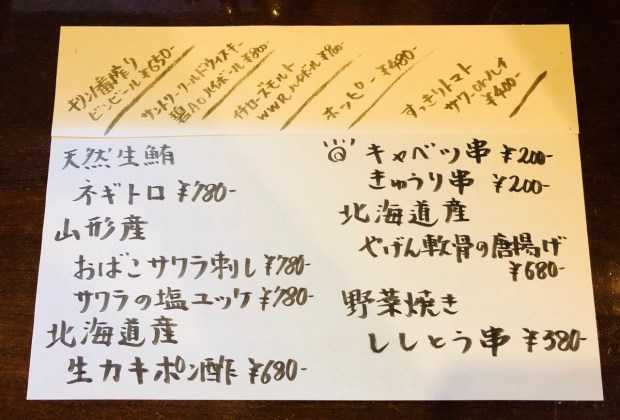 キリン一番搾り
ビンビール ¥650-
サントリーワールドウィスキー
碧Aoハイボール ¥800-
イチローズモルト
WWRハイボール ¥900-
ホッピー ¥480-
すっきりトマト
サワー
¥400-
天然生鮪
ネギトロ ¥780-
山形産
おばこサワラ刺し ¥780-
サワラの塩ユッケ ¥780-
北海道産
生カキポン酢 ¥680-
キャベツ串 ¥200-
きゅうり串 ¥200-
北海道産
やげん軟骨の唐揚げ
¥680-
野菜焼き
ししとう串 ¥380-